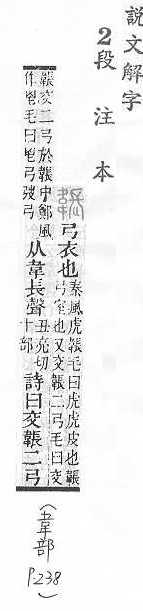 說文解字
2段注本
弓衣也
秦風虎韔毛曰虎虎皮也韔
弓室也又交韔二弓毛曰交
韔交二弓於韔中鄭風
作鬯毛曰鬯弓弢弓
从韋長聲
丑亮切
十部
詩曰交韔二弓
(韋部
P238)